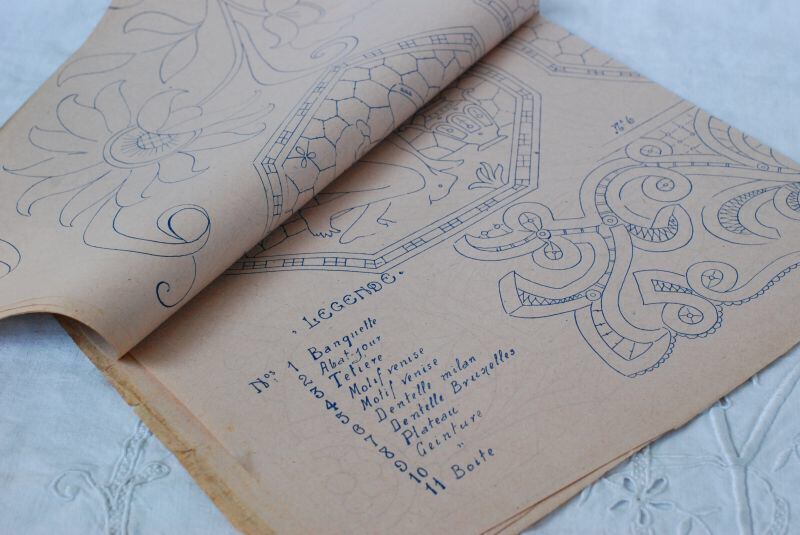 No 6
LEGENDE.
Nos 1 Banquette
2 Abat-jour
3 Tetière
4 Motif venise
5 Motif venise
6 Dentelle milan
7 Dentelle Bruxelles
8 Plateau
9 Ceinture
10 "
11 Boite